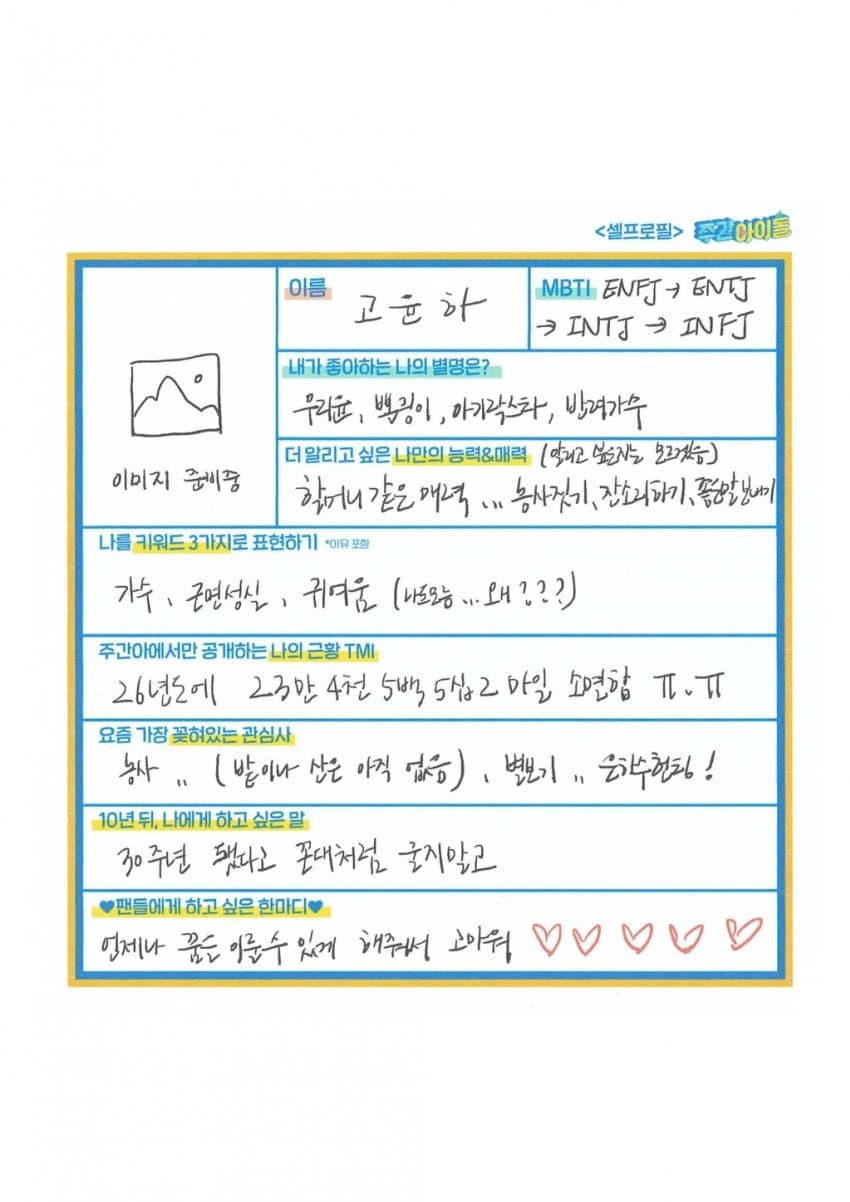 <셀프로필> 주간아이돌
이름
고윤하
MBTI ENFJ → ENTJ
→ INTJ → INFJ
이미지 준비중
내가 좋아하는 나의 별명은?
우리윤, 뽀링이, 아기락스타, 반려가수
더 알리고 싶은 나만의 능력&매력 (알리고 싶은지는 모르겠음)
할머니 같은 매력 ... 농사짓기, 잔소리하기, 좋은말보내기
나를 키워드 3가지로 표현하기 *이유 포함
가수, 근면성실, 귀여움 (나도모름 ... 왜???)
주간아에서만 공개하는 나의 근황 TMI
26년도에 23만 4천 5백 5십2 마일 소멸함 ㅠ.ㅠ
요즘 가장 꽂혀있는 관심사
농사 .. (밭이나 산은 아직 없음), 별보기 .. 은하수헌팅!
10년 뒤, 나에게 하고 싶은 말
30주년 됐다고 꼰대처럼 굴지말고
♥팬들에게 하고 싶은 한마디♥
언제나 꿈을 이룰수 있게 해줘서 고마워 ♡♡♡♡♡